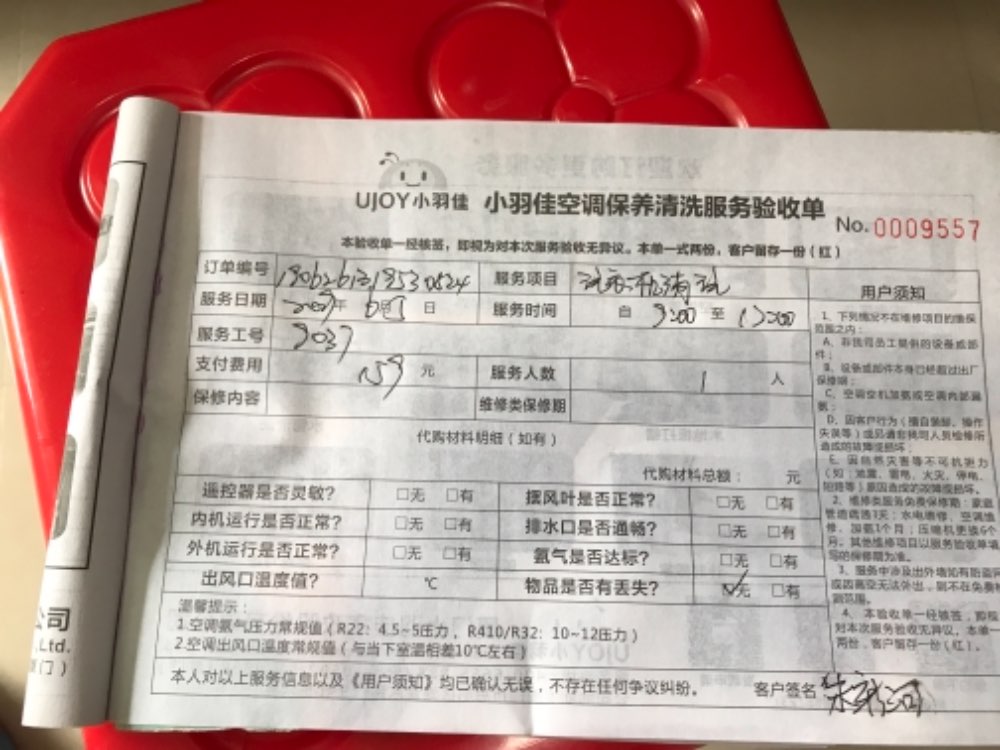 UJOY小羽佳 小羽佳空调保养清洗服务验收单
No. 0009557
本验收单一经核签，即视为对本次服务验收无异议。本单一式两份，客户留存一份（红）
订单编号 服务项目
服务日期 年 日 服务时间 自 9:00 至
服务工号 9037
支付费用 159 元 服务人数 1 人
保修内容 维修类保修期
代购材料明细（如有）
代购材料总额： 元
遥控器是否灵敏？ □无 □有 摆风叶是否正常？ □无 □有
内机运行是否正常？ □无 □有 排水口是否通畅？ □无 □有
外机运行是否正常？ □无 □有 氩气是否达标？ □无 □有
出风口温度值？ ℃ 物品是否有丢失？ ☑无 □有
温馨提示：
1.空调氩气压力常规值（R22：4.5~5压力，R410/R32：10~12压力）
2.空调出风口温度常规值（与当下室温相差10℃左右）
本人对以上服务信息以及《用户须知》均已确认无误，不存在任何争议纠纷。 客户签名
用户须知
1、下列情况不在维修项目的维保
范围之内：
A、非我司员工提供的设备或部
件；
B、设备或部件本身已经超过出厂
保修期；
D、因客户行为（擅自装卸、操作
造成的故障或损坏；
E、因自然灾害等不可抗力
2、维修类服务免费保修期：家庭
管道疏通3天；水电维修、空调维
修、加氩1个月；压缩机更换6个
月。其他维修项目以服务验收单填
写的保修期为准。
4、本验收单一经核签，即视
对本次服务验收无异议。本单一
两份，客户留存一份（红）。
公司
.,Ltd.
门）